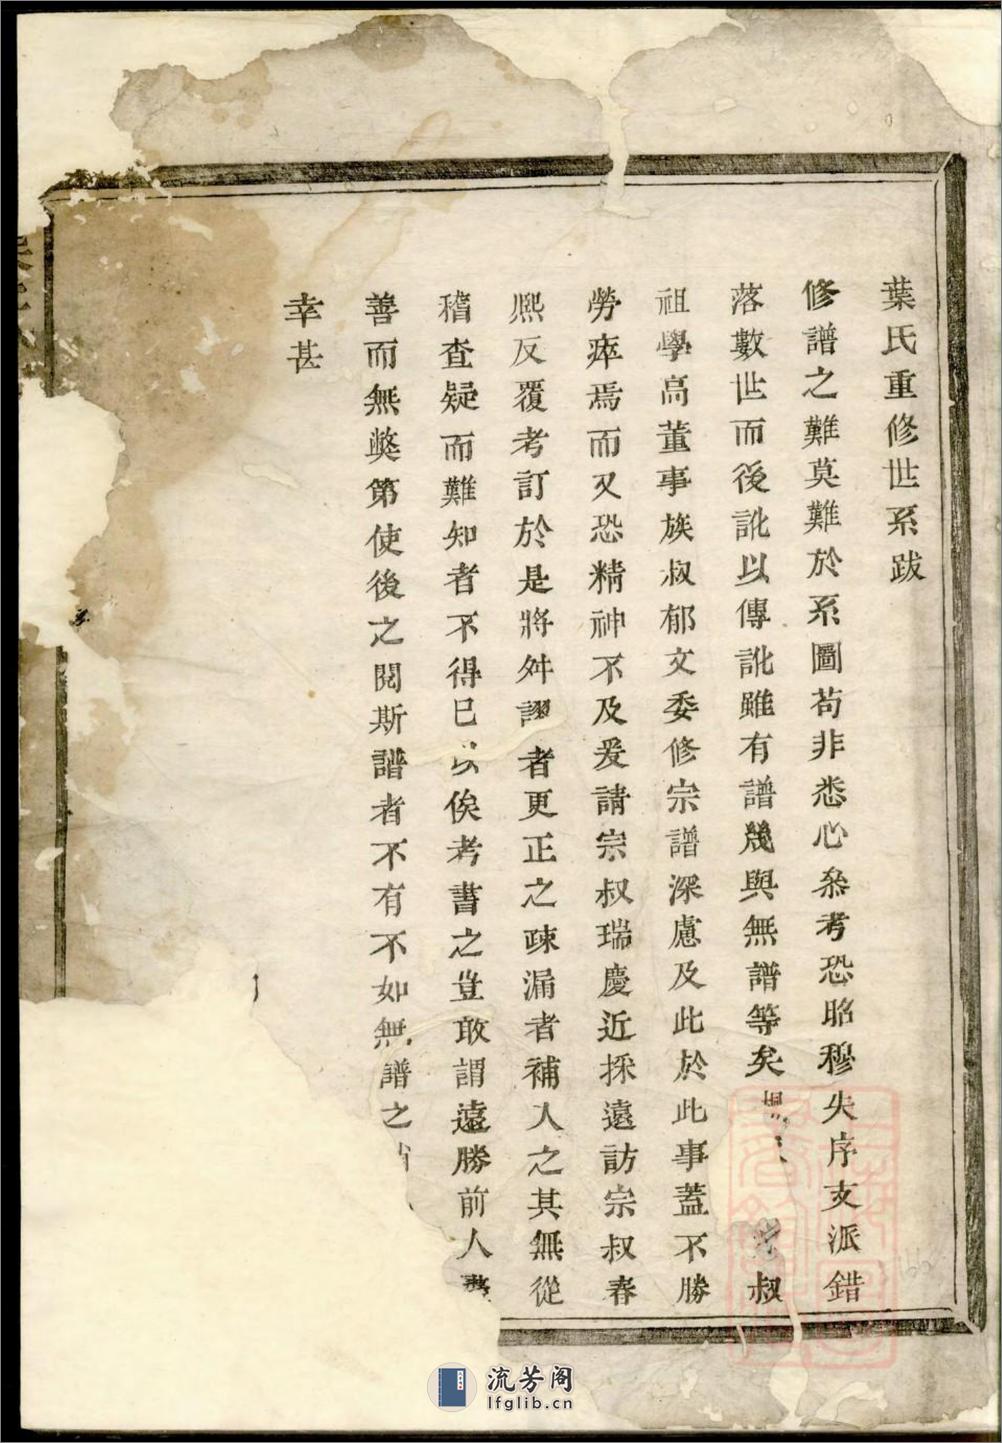 葉氏重修世系跋
修譜之難莫難於系圖苟非悉心叅考恐昭穆失序支派錯
落數世而後訛以傳訛雖有譜幾與無譜等矣叔
祖學高董事族叔郁文委修宗譜深慮及此於此事蓋不勝
勞瘁焉而又恐精神不及爰請宗叔瑞慶近採遠訪宗叔春
熙反覆考訂於是將舛謬者更正之疎漏者補入之其無從
稽查疑而難知者不得已以俟考書之豈敢謂遠勝前人
善而無弊第使後之閱斯譜者不有不如無譜之
幸甚
流芳阁
lfglib.cn